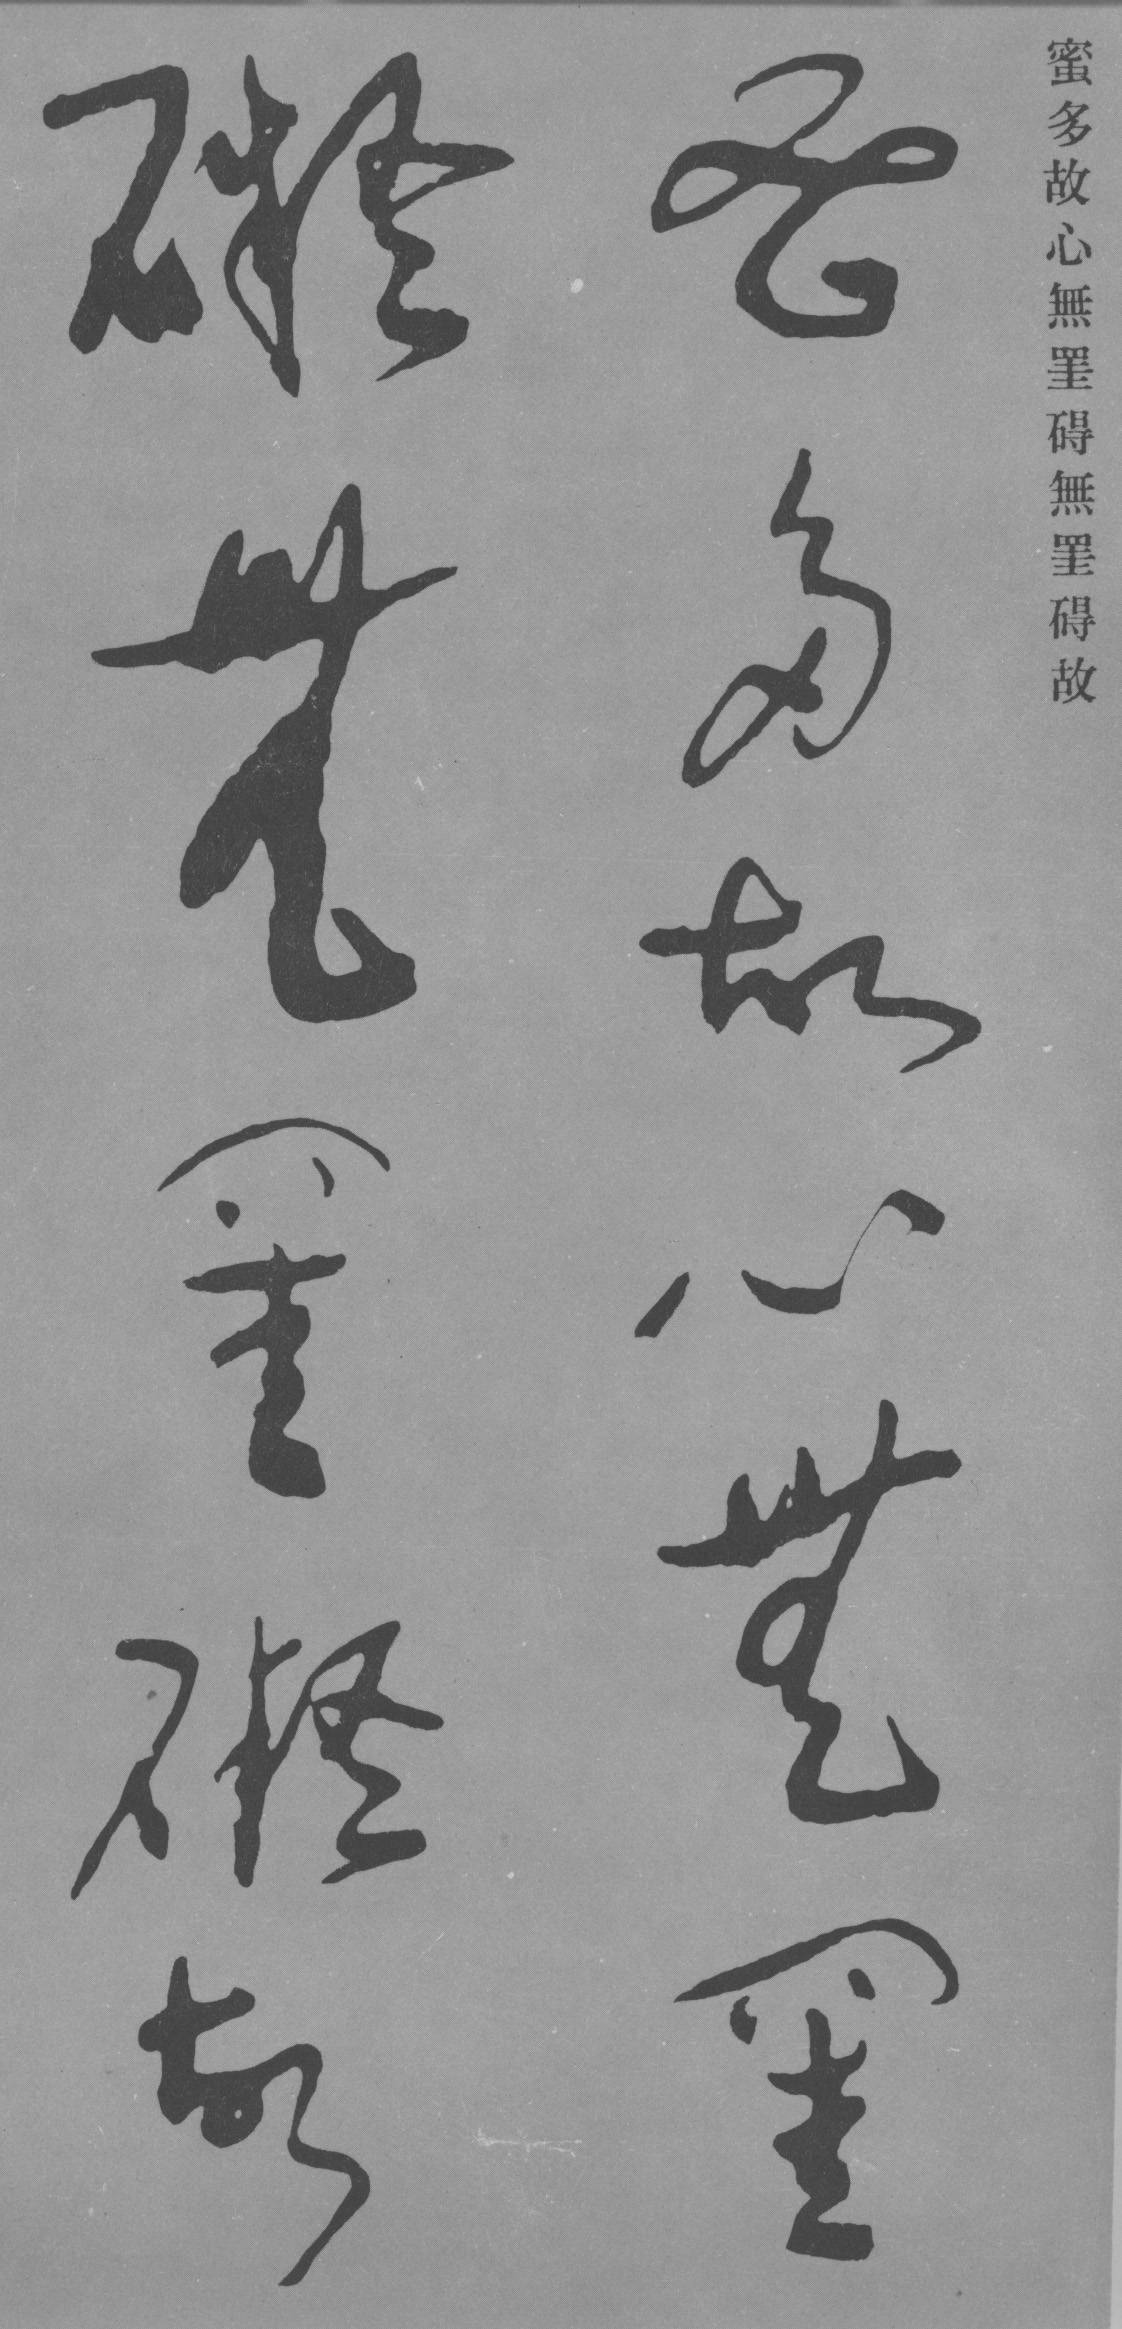 蜜多故心無罣碍無罣碍故
蜜多故心無罣
礙無罣礙故